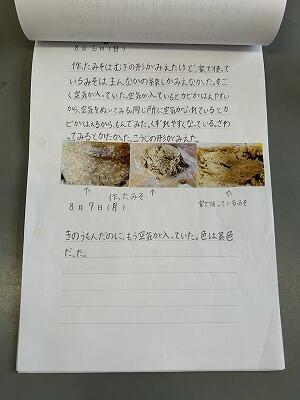 8月6日(日)
作ったみそはむぎの形がみえたけど、家で使って
いるみそはまんなかの線しかみえなかった。すご
く空気が入っていた。空気が入っているとカビがはえやすい
から、空気をぬいてみる。同じ所に空気がふれているとカ
ビがはえるから、もんでみた。くずれやすくなっている。さわ
ってみるとかたかった。こうじの形がみえた。
作ったみそ
家で使っているみそ
8月7日(月)
きのうもんだのに、もう空気が入っていた。色は茶色
だった。